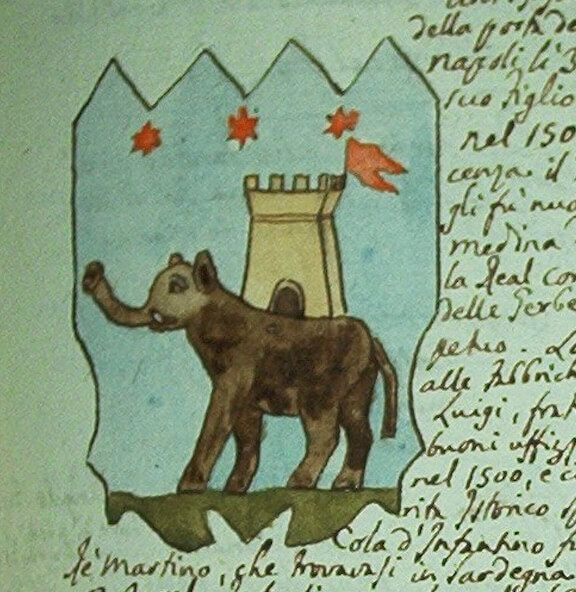 della posta de
napoli li 3
suo figlio
nel 150
cenza il
gli fù nuo
medina
la Real con
delle Gerbe
alle fabbrich
Luigi, frat
buoni uffizj
nel 1500, e c
rita Istorico
Cola d'Infantino f
fè Martino, che trovavasi in Sardegna